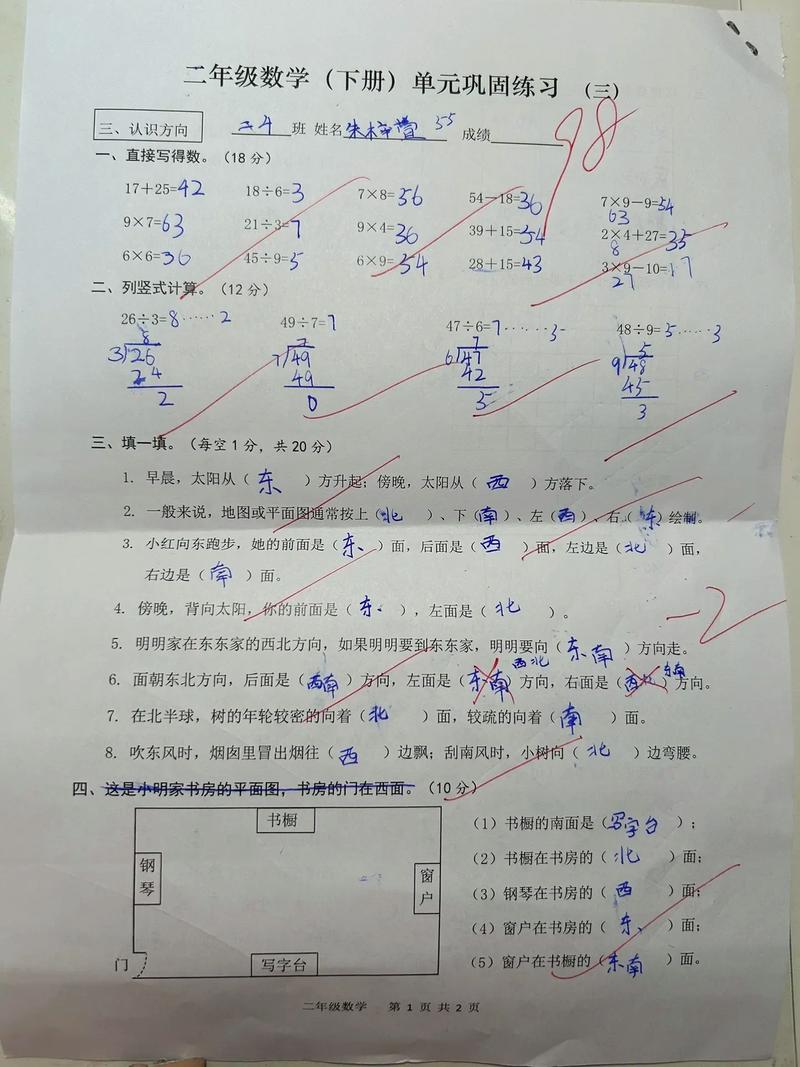 二年级数学（下册）单元巩固练习（三）
三、认识方向 二4班 姓名朱梓萱 55 成绩 98
一、直接写得数。（18分）
17＋25=42 18÷6=3 7×8=56 54－18=36 7×9－9=54
63
9×7=63 21÷3=7 9×4=36 39＋15=54 2×4＋27=35
8
6×6=36 45÷9=5 6×9=54 28＋15=43 3×9－10=17
27
二、列竖式计算。（12分）
26÷3=8……2 49÷7=7 47÷6=7……5 48÷9=5……3
8 7 7 5
3 26 7 49 6 47 9 48
24 49 42 45
2 0 5 3
三、填一填。（每空1分，共20分）
1. 早晨，太阳从（东）方升起；傍晚，太阳从（西）方落下。
2. 一般来说，地图或平面图通常按上（北）、下（南）、左（西）、右（东）绘制。
3. 小红向东跑步，她的前面是（东）面，后面是（西）面，左边是（北）面，
右边是（南）面。
4. 傍晚，背向太阳，你的前面是（东），左面是（北）。
-2
5. 明明家在东东家的西北方向，如果明明要到东东家，明明要向（东南）方向走。
西北 东南
6. 面朝东北方向，后面是（西南）方向，左面是（东南）方向，右面是（西北）方向。
7. 在北半球，树的年轮较密的向着（北）面，较疏的向着（南）面。
8. 吹东风时，烟囱里冒出烟往（西）边飘；刮南风时，小树向（北）边弯腰。
四、这是小明家书房的平面图，书房的门在西面。（10分）
书橱
钢琴
窗户
门
写字台
（1）书橱的南面是（写字台）；
（2）书橱在书房的（北）面；
（3）钢琴在书房的（西）面；
（4）窗户在书房的（东）面；
（5）窗户在书橱的（东南）面。
二年级数学 第 1 页 共 2 页